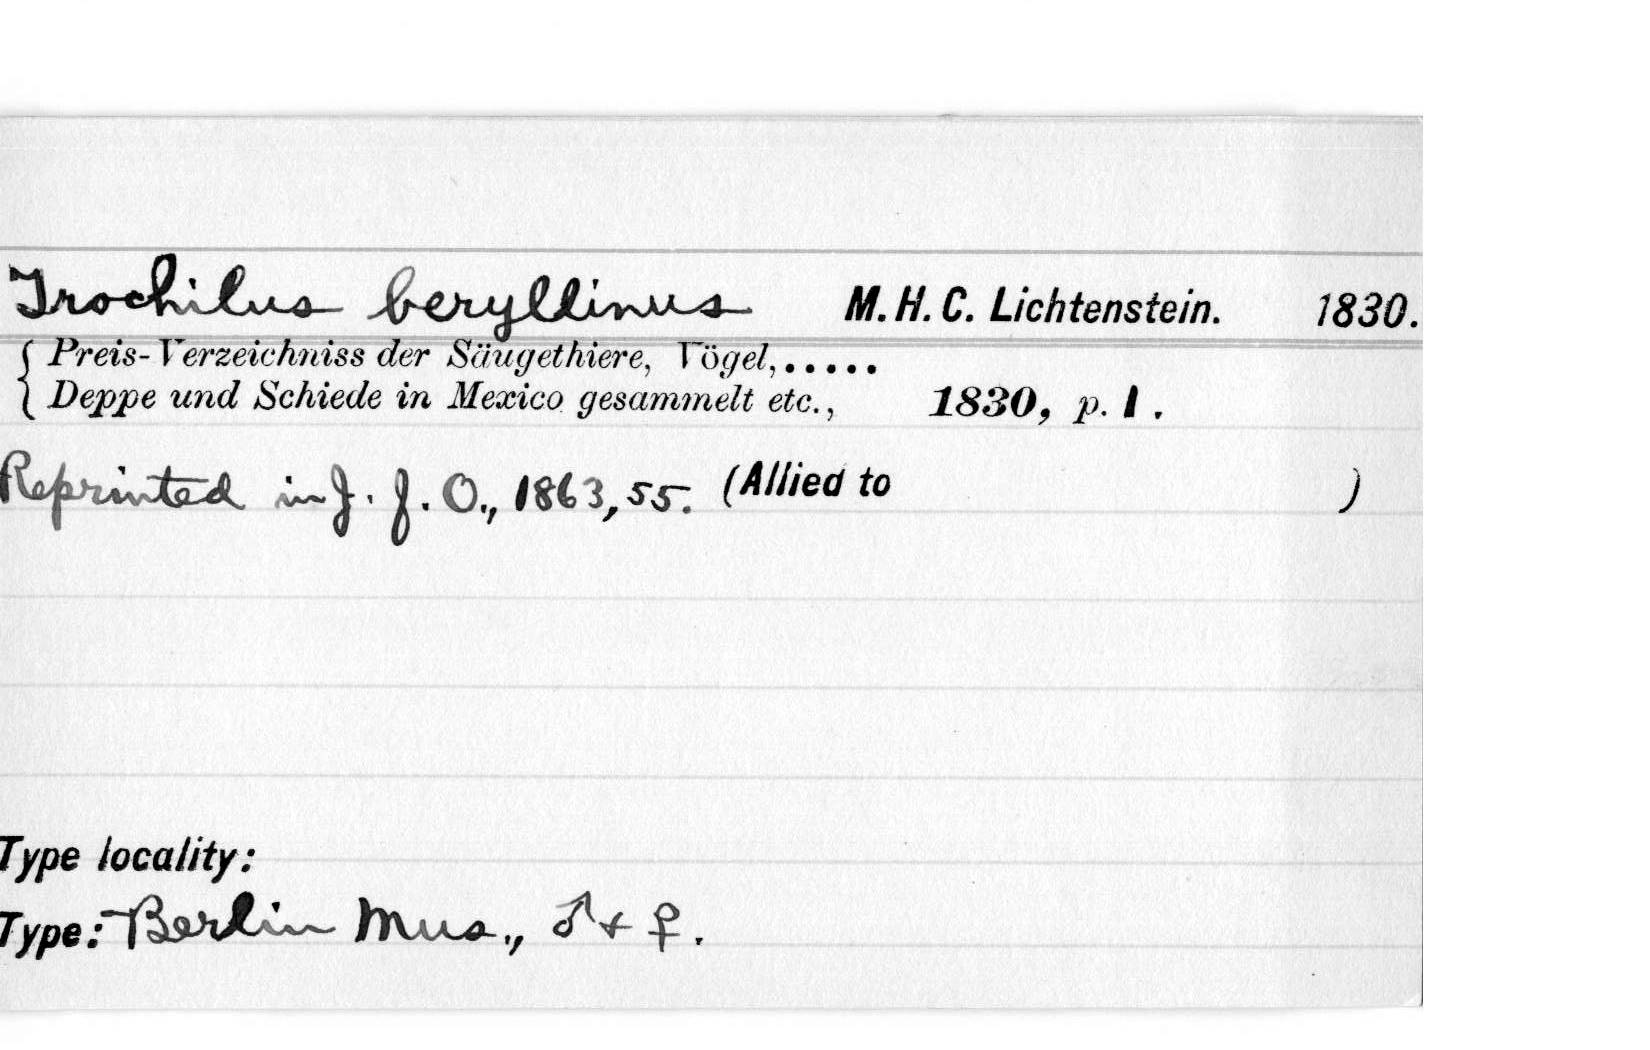 Trochilus beryllinus M. H. C. Lichtenstein. 1830.
{ Preis-Verzeichniss der Säugethiere, Vögel,.....
{ Deppe und Schiede in Mexico gesammelt etc., 1830, p. 1.
Reprinted in J. f. O., 1863, 55. (Allied to )
Type locality:
Type: Berlin Mus., ♂ + ♀.